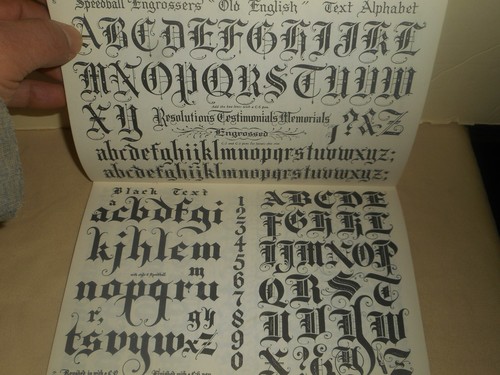 Speedball "Engrossers" "Old English" Text Alphabet
ABCDEFGHIJKL
MNOPQRSTUVW
XY Resolutions Testimonials Memorials ,?&Z
Engrossed
abcdefghijklmnopqrstuvwxyz;
abcdefghijklmnopqrstuvwxyz;
Black Text
a
acbdfgi
kjhlem
m
nopqru
r, gy
tsvywxz
1
2
3
4
5
6
7
8
9
0
ABCDE
FGHKL
IJMNOP
QRST
UVYW
X?&Z